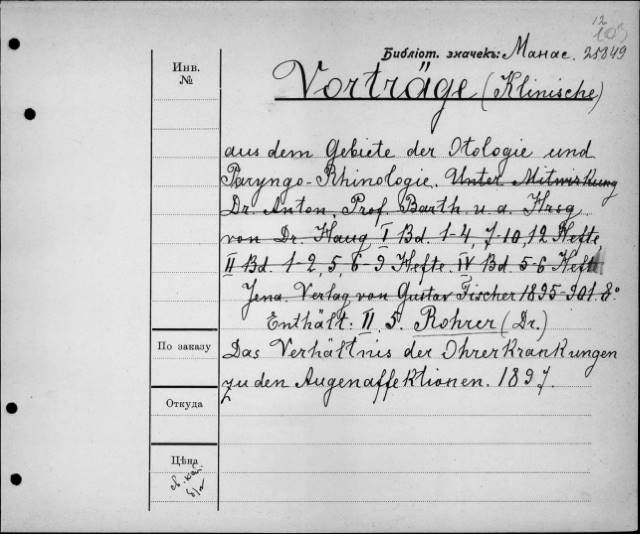 12
103
Библіот. значекъ: Манас. 25849
Инв. №
Vorträge (Klinische)
aus dem Gebiete der Otologie und
Paryngo-Rhinologie. Unter Mitwirkung
Dr. Anton, Prof. Barth u. a. Hrsg
von Dr. Haug, I Bd. 1-4, 7-10, 12 Hefte,
II Bd. 1-2, 5, 6-9 Hefte. IV Bd. 5-6 Heft
Jena. Verlag von Gustav Fischer 1895-901. 8°
Enthält: II, 5. Rohrer (Dr.)
По заказу
Das Verhältnis der Ohrerkrankungen
zu den Augenaffektionen. 1897.
Откуда
Цѣна
св. кат.